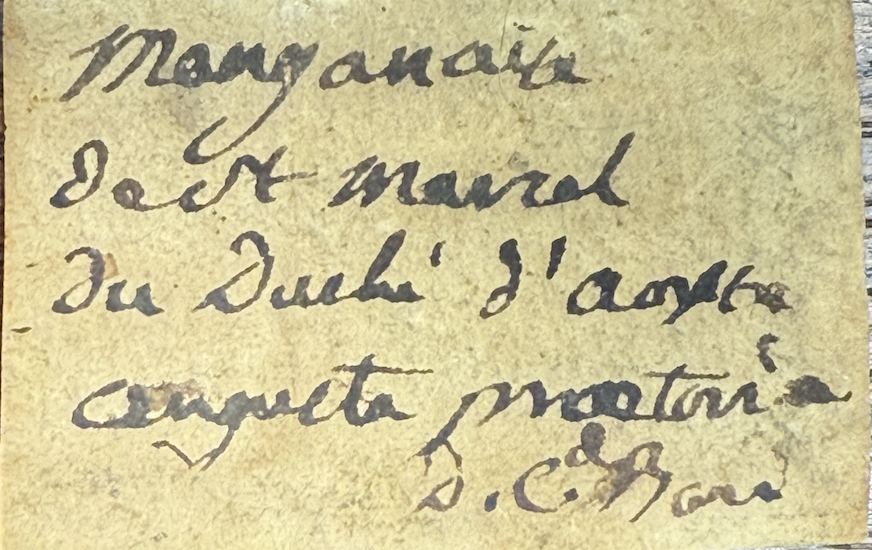 Manganaise
de St marcel
du Duché d'aoste
augusta praetoria
D. C de Bard